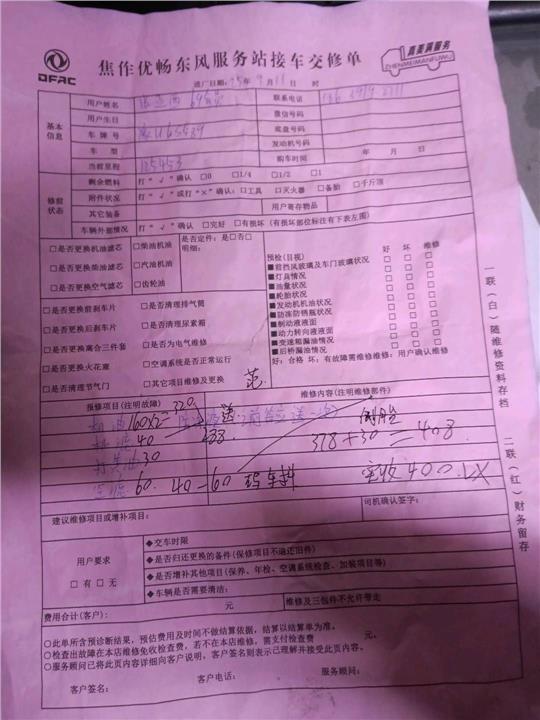 DFAC
焦作优畅东风服务站接车交修单
真美满服务
ZHENMEIMANFUWU
进厂日期:25年9月11日 时
基本信息
用户姓名
联系电话
用户生日
微信号码
车牌号
底盘号码
车型
发动机号码
当前里程 125453
购车时间 年 月 日
修前状态
剩余燃料 打“√”确认 □0 □1/4 □1/2 □1
附件状况 打“√”或打“×”确认:□工具 □灭火器 □备胎 □千斤顶
其它装备
用户寄存物品
车辆外部情况 打“√”确认 □完好 □有损坏(有损坏部位标注有下表左图)
□是否更换机油滤芯 □柴油机油 是否定件:是□否□
□是否更换柴油滤芯 □汽油机油 明细:
□是否更换空气滤芯 □齿轮油
□是否更换前刹车片 □是否清理排气筒
□是否更换后刹车片 □是否清理尿素箱
□是否更换离合三件套 □是否为电气维修
□是否更换火花塞 □空调系统是否正常运行
□是否清理节气门 □其它项目维修及更换
预检(目视) 好 坏 维修
■前挡风玻璃及车门玻璃状况 □ □ □
■灯具情况 □ □ □
■油量状况 □ □ □
■轮胎状况 □ □ □
■发动机机油状况 □ □ □
■防冻防锈瓶状况 □ □ □
■制动液液面 □ □ □
■动力转向液液面 □ □ □
■变速箱漏油情况 □ □ □
■后桥漏油情况 □ □ □
好:合格 坏:有故障需维修维修:用户确认维修
报修项目(注明故障)
维修内容(注明维修部件)
机油160x2=320
机滤40
288
378+30=408
打黄油30
空滤60
实收400
建议维修项目或增补项目:
司机确认签字:
用户要求
□有□无
◆交车时限
◆是否归还更换的备件(保修项目不退还旧件)
◆是否增补其他项目(保养、年检、空调系统检查、加装项目等)
◆车辆是否需要清洁:
费用合计(客户): 元
维修及三包件不允许带走
○此单所含预诊断结果,预估费用及时间不做结算依据,结算以结算单为准。
○检查出故障在本店维修免收检查费,若不在本店维修,需支付检查费 元。
○服务顾问已将此页内容详细向客户说明,客户签名则表示已理解并接受此页内容。
客户签名: 客户电话: 服务顾问:
一联(白)随维修资料存档
二联(红)财务留存